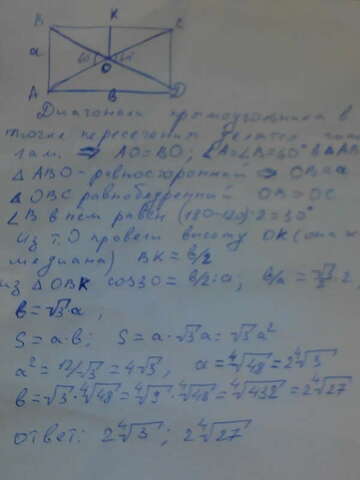 B K C
a 60° 60°
O
A B D
Диагонали прямоугольника в
точке пересечения делятся
⇒ AO=BO; ∠A=∠B=
△ABO - равносторонний ⇒ OB=a
△OBC равнобедренный OB=OC
∠B в нем равен (180-120):2=30°
Из т.O провели высоту OK (она же
медиана) BK=b/2
из △OBK cos30=b/2:a; b/a=√3/2·2,
b=√3a,
S=a·b; S=a·√3a=√3a²
a²=12/√3=4√3, a=⁴√48=2⁴√3
b=√3·⁴√48=⁴√9·⁴√48=⁴√432=2⁴√27
ответ: 2⁴√3; 2⁴√27